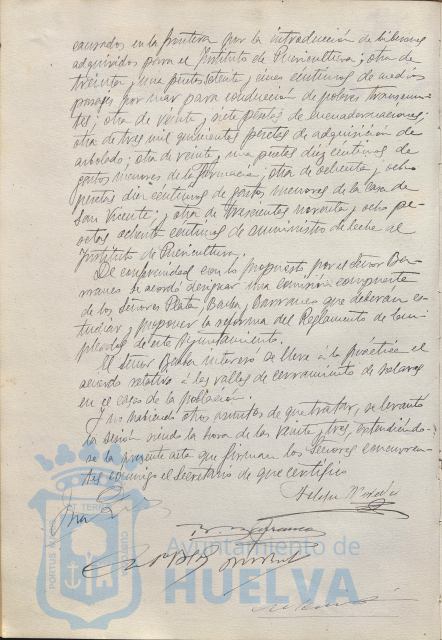 causados en la frontera por la introducción de biberones
adquiridos para el Instituto de Puericultura; otra de
treinta y una pesetas setenta y cinco céntimos de medios
pasajes por mar para conducción de pobres transeun-
tes; otra de veinte y siete pesetas de encuadernaciones;
otra de tres mil quinientas pesetas de adquisición de
arbolado; otra de veinte y una pesetas diez céntimos de
gastos menores de la farmacia; otra de ochenta y ocho
pesetas diez céntimos de gastos menores de la Casa de
San Vicente; y otra de trescientas noventa y ocho pe-
setas ochenta céntimos de suministro de leche al
Instituto de Puericultura.
De conformidad con lo propuesto por el Señor
se acordó designar una comisión compuesta
de los Señores Plata, y que deberán es-
tudiar y proponer la reforma del Reglamento de Em-
pleados de este Ayuntamiento.
El Señor interesó se lleve á la práctica el
acuerdo relativo á las vallas de cerramiento de solares
en el casco de la población.
Y no habiendo otros asuntos de que tratar, se levantó
la sesión siendo la hora de las veinte y tres, extendiendo-
se la presente acta que firman los Señores concurren-
tes conmigo el Secretario de que certifico
PORTUS MARIS ET TERRAE CUSTODIA
Ayuntamiento de
HUELVA